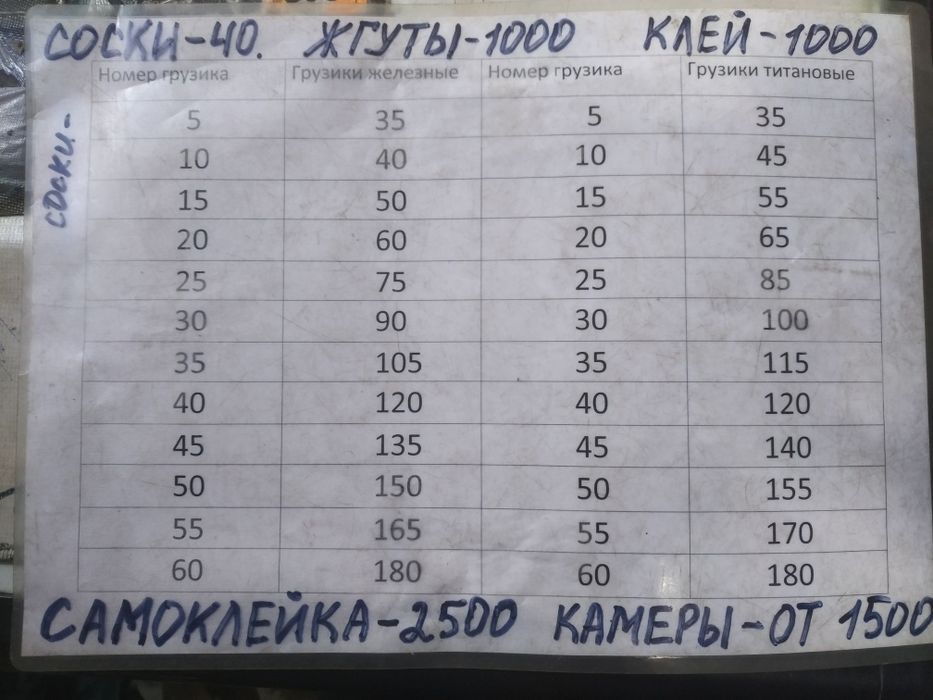 СОСКИ-40. ЖГУТЫ-1000 КЛЕЙ-1000
соски-
Номер грузика Грузики железные Номер грузика Грузики титановые
5 35 5 35
10 40 10 45
15 50 15 55
20 60 20 65
25 75 25 85
30 90 30 100
35 105 35 115
40 120 40 120
45 135 45 140
50 150 50 155
55 165 55 170
60 180 60 180
САМОКЛЕЙКА-2500 КАМЕРЫ-ОТ 1500